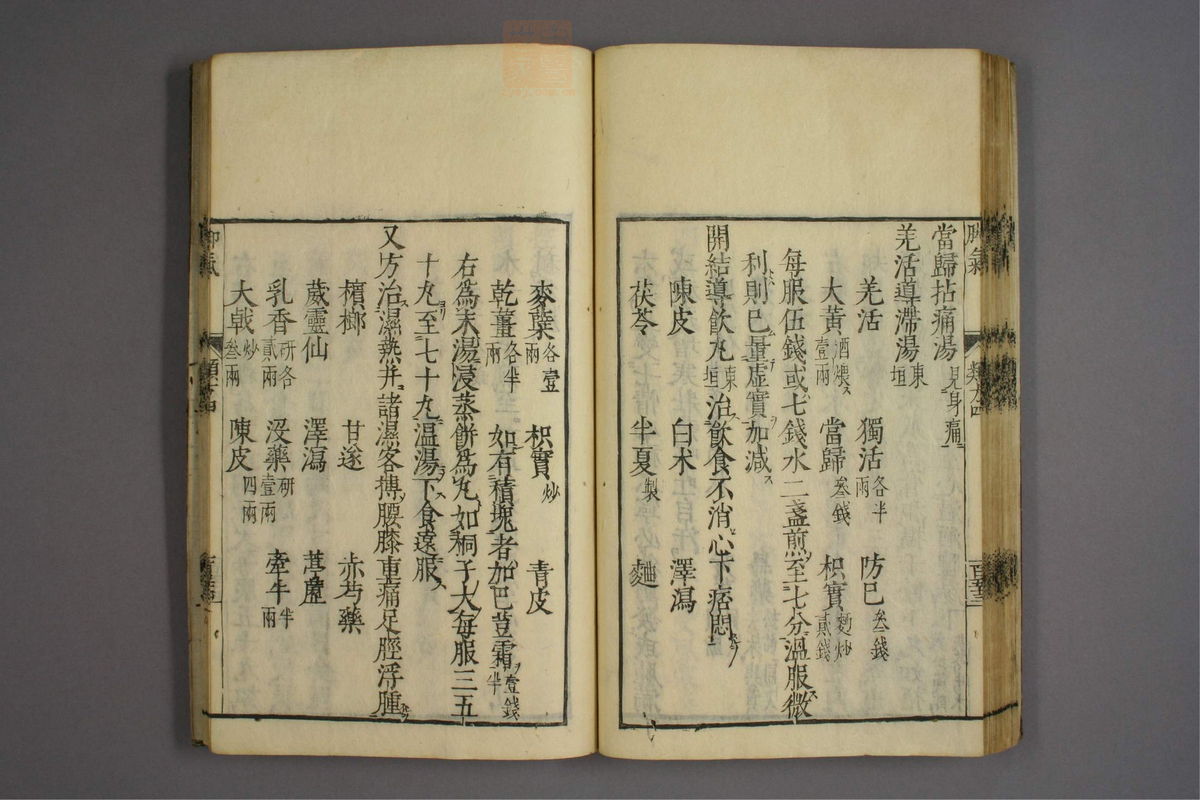 當歸拈痛湯 見身痛
羌活導滯湯 東垣
羌活 獨活 各半兩 防已 叁錢
大黃 酒煨壹兩 當歸 叁錢 枳實 麩炒貳錢
每服伍錢或七錢水二盞煎至七分溫服微
利則已量虛實加減
開結導飲丸 東垣 治飲食不消心下痞悶
陳皮 白朮 澤瀉
茯苓 半夏 製 麯
麥蘗 各壹兩 枳實 炒 青皮
乾薑 各半兩 如有積塊者加巴豆霜 壹錢半
右為末湯浸蒸餅為丸如桐子大每服三五
十丸至七十丸溫湯下食遠服
又方治濕熱并諸濕客搏腰膝重痛足脛浮腫
檳榔 甘遂 赤芍藥
葳靈仙 澤瀉 葶藶
乳香 研各貳兩 沒藥 研壹兩 牽牛 半兩
大戟 炒叁兩 陳皮 四兩